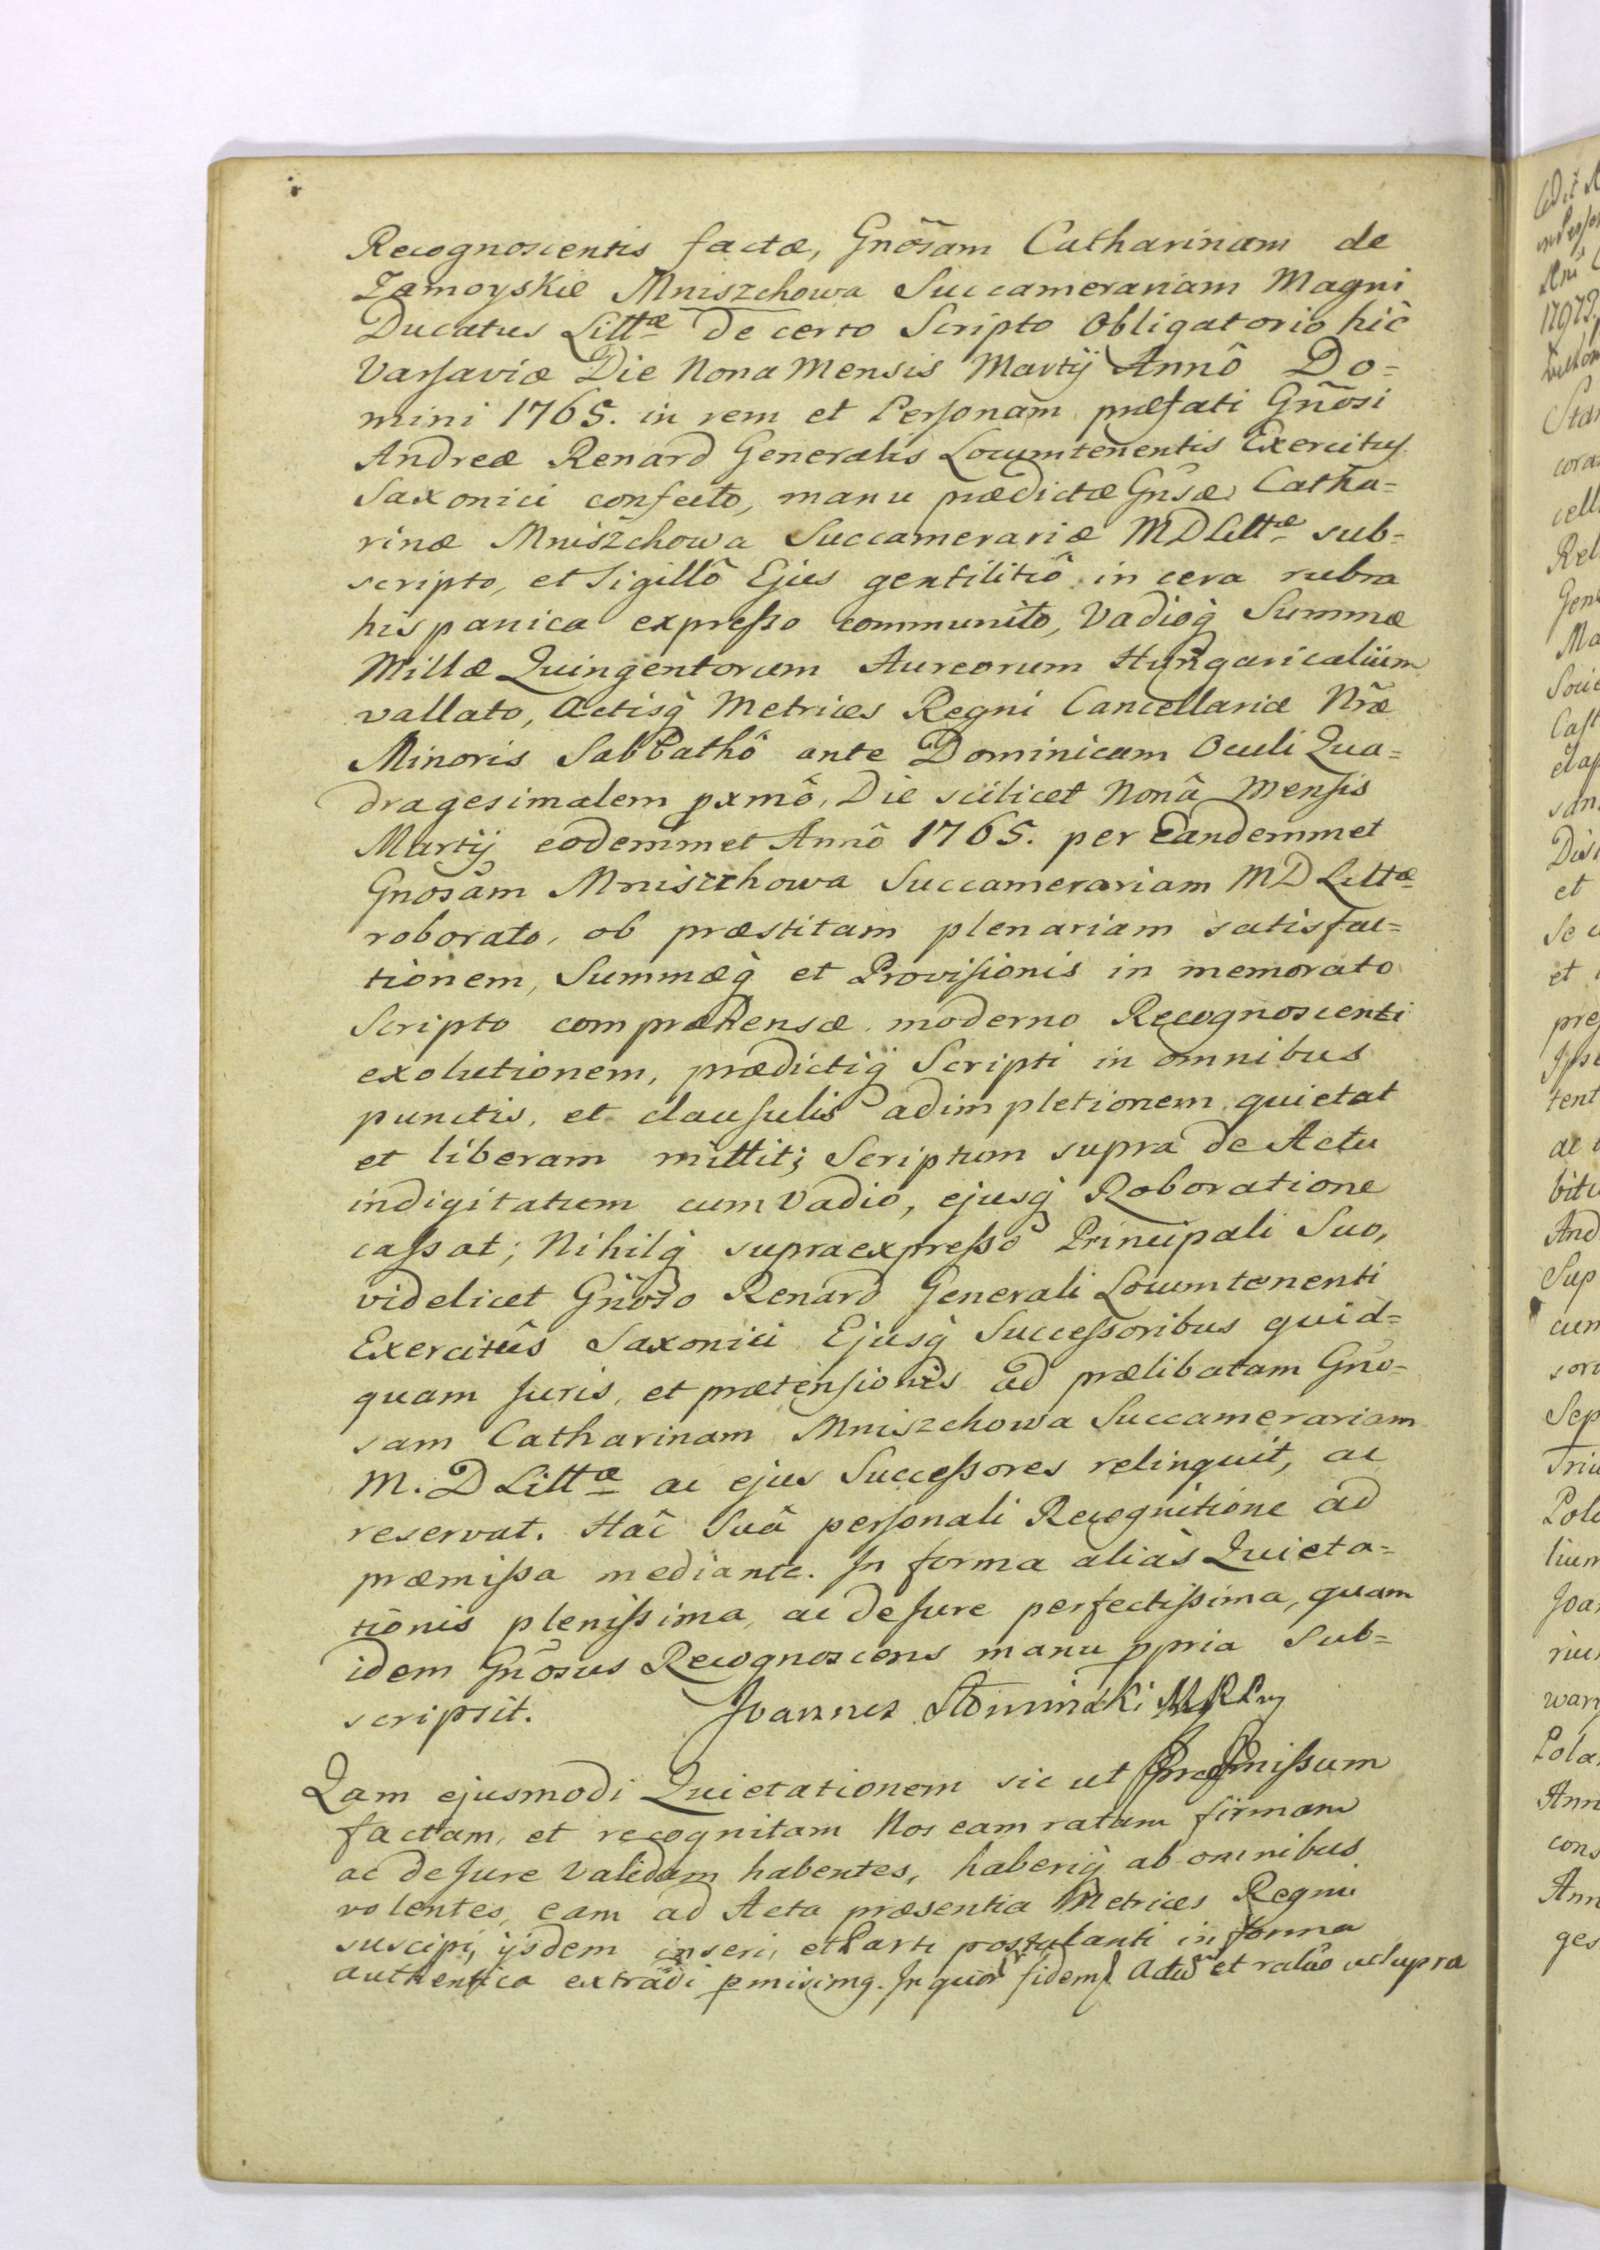 Recognoscentis factæ, Gnõsam Catharinam de
Zamoyskie Mniszchowa Succamerariam Magni
Ducatus Littæ de certo Scripto Obligatorio hîc
Varsaviæ Die Nona Mensis Martij Annô Do=
mini 1765. in rem et Personam præfati Gnõsi
Andreæ Renard Generalis Locumtenentis Exercitus
Saxonici confecto, manu prædictæ Gnsæ Catha=
rinæ Mniszchowa Succamerariæ MDLittæ sub=
scripto, et Sigillô Ejus gentilitiô in cera rubra
hispanica expresso communito, Vadioq̀ Summæ
Millæ Quingentorum Aureorum Hungaricalium
vallato, Actisq̀ Metrices Regni Cancellariæ Nræ
Minoris Sabbathô ante Dominicam Oculi Qua=
dragesimalem pxmô, Die scilicet Nonâ Mensis
Martij eodemmet Annô 1765. per Eandemmet
Gnosam Mniszchowa Succamerariam MD Littæ
roborato, ob præstitam plenariam satisfac=
tionem, Summæq̀ et Provisionis in memorato
Scripto compræhensæ moderno Recognoscenti
exolutionem, prædictiq̀ Scripti in omnibus
punctis, et clausulis adimpletionem quietat
et liberam mittit; Scriptum supra de Actu
indigitatum cum Vadio, ejusq̀ Roboratione
cassat; Nihilq̀ supraexpresso Principali Suo,
videlicet Gnõso Renard Generali Locumtenenti
Exercitûs Saxonici Ejusq̀ Successoribus quid=
quam Juris, et prætensionis ad prælibatam Gno=
sam Catharinam Mniszchowa Succamerariam
M. D Littæ ac ejus Successores relinquit, ac
reservat. Hac Suâ personali Recognitione ad
præmissa mediante. In forma aliàs Quieta=
tionis plenissima, ac de Jure perfectissima, quam
idem Gnõsus Recognoscens manu ppria Sub=
scripsit. Joannes Słomiński
Qam ejusmodi Quietationem sic ut Præmissum
factam, et recognitam Nos eam ratam firmam
ac de Jure Validam habentes, haberiq̀ ab omnibus
volentes, eam ad Acta præsentia Metrices Regni
suscipi, ijsdem inseri, et Parti postulanti in forma
authentica extradi pmisimq. In quor fidem Actũ et ut supra